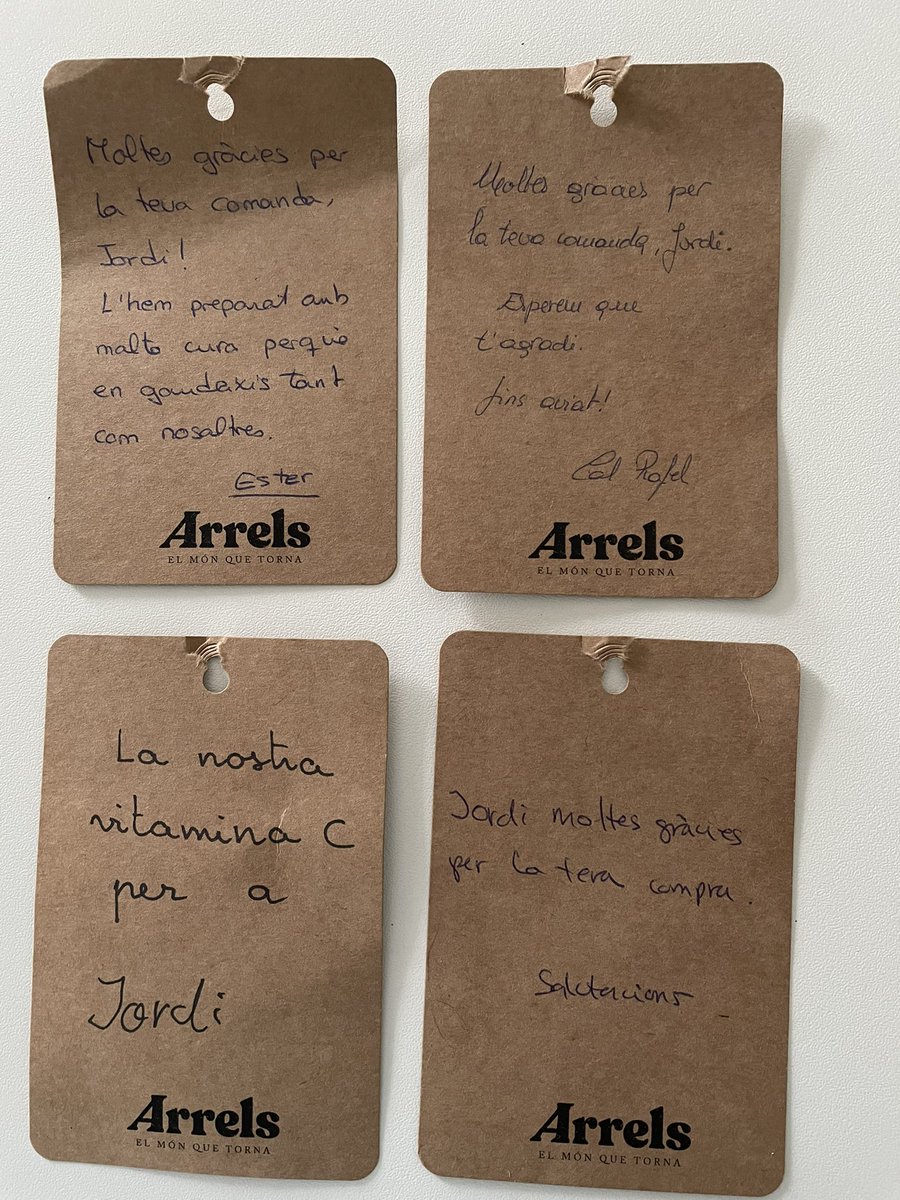 Moltes gràcies per
la teva comanda,
Jordi!
L'hem preparat amb
molta cura perquè
en gaudeixis tant
com nosaltres.
Ester
Arrels
EL MÓN QUE TORNA
Moltes gràcies per
la teva comanda, Jordi.
Esperem que
t'agradi.
fins aviat!
Cal Rafel
Arrels
EL MÓN QUE TORNA
La nostra
vitamina C
per a
Jordi
Arrels
EL MÓN QUE TORNA
Jordi moltes gràcies
per la teva compra.
Salutacions
Arrels
EL MÓN QUE TORNA